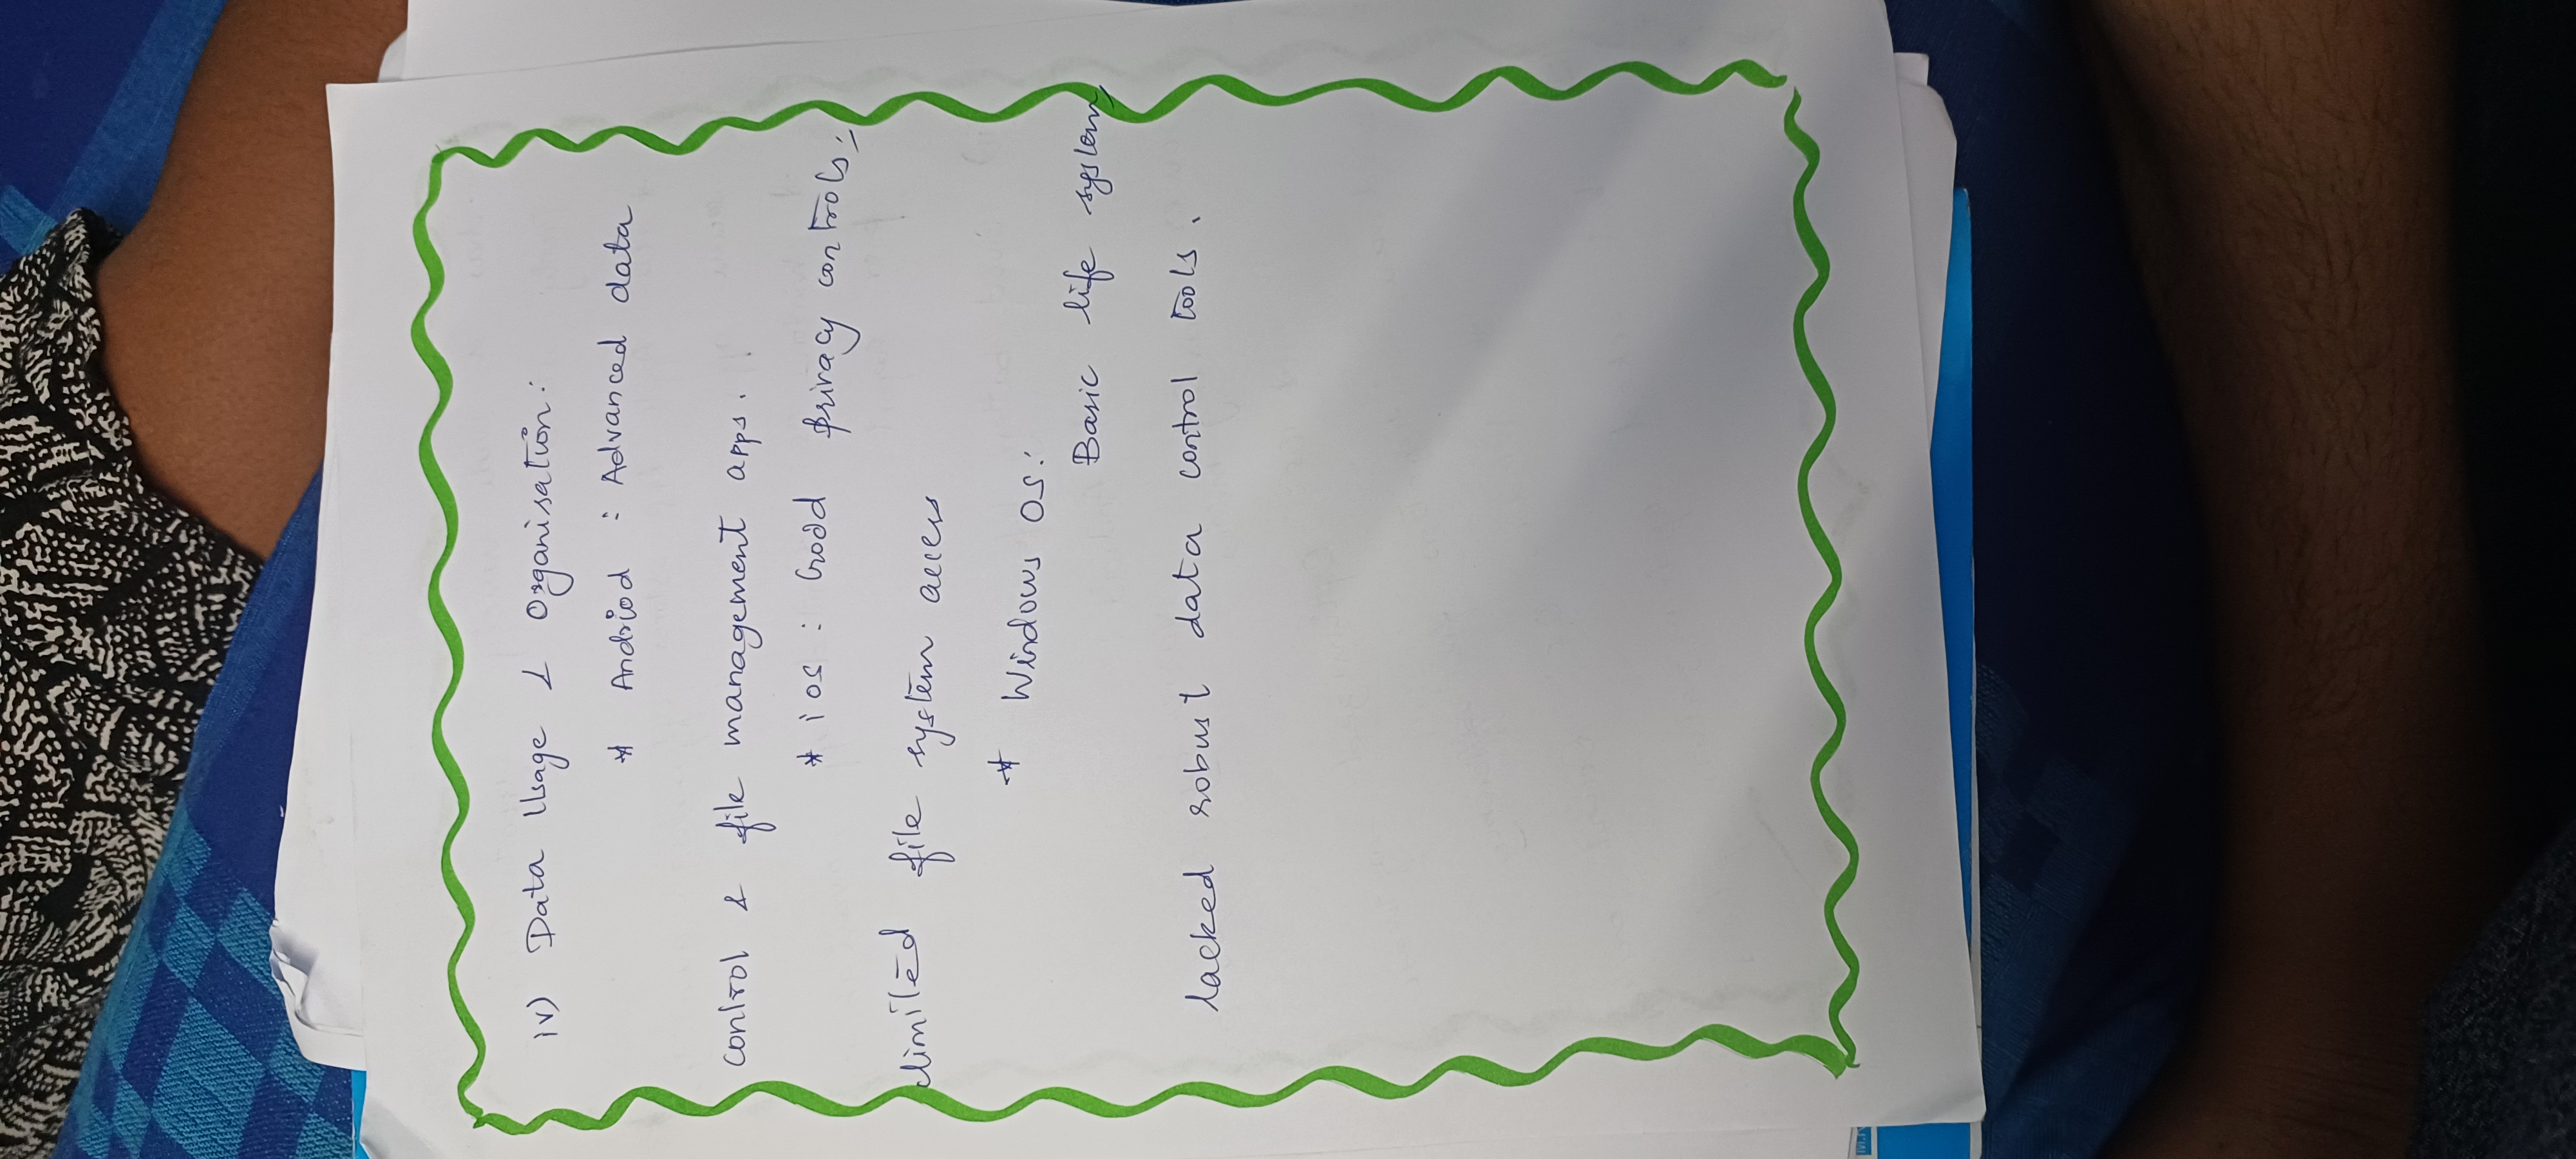 iv) Data Usage & Organisation:
* Andriod : Advanced data
control & file management apps.
* ios : Good privacy controls,
limited file system access
* Windows OS:
Basic life system,
lacked robust data control tools.